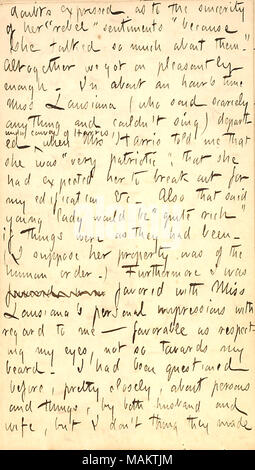 doubts expressed as to the sincerity
of her "rebel" sentiments "because
she talked so much about them."
Altogether we got on pleasantly
enough. In about an hair's time
Miss Louisiana (who said scarcely
anything and couldn't sing) depart-
under convoy of Harris
ed, when Mrs Harris told me that
she was "very patriotic," that she
had expected her to break out for
my edification &c. Also that said
young lady would be "quite rich"
if things were as they had been.
(I suppose her property was of the
human order.) Furthermore I was
favored with Miss
Louisiana's personal impressions with
regard to me — favorable as respect-
ing my eyes, not so towards my
beard. I had been questioned
before, pretty closely, about persons
and things, by both husband and
wife, but I don't thing they made
alamy
Image ID: MAKTJM
www.alamy.com